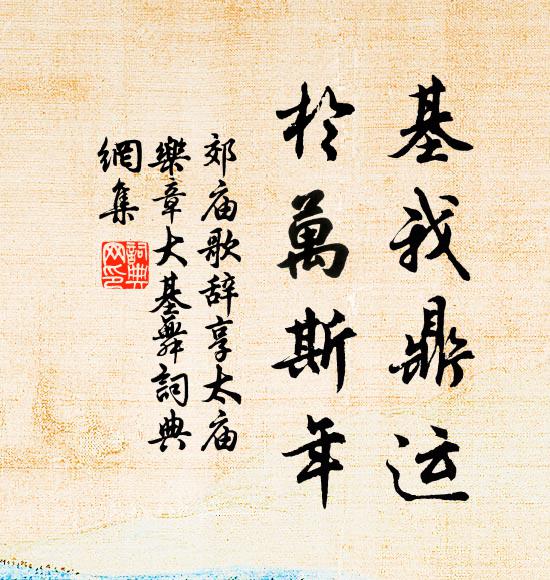 基我鼎运
於萬斯年
郊庙歌辞享太庙
樂章大基舞詞典
網集